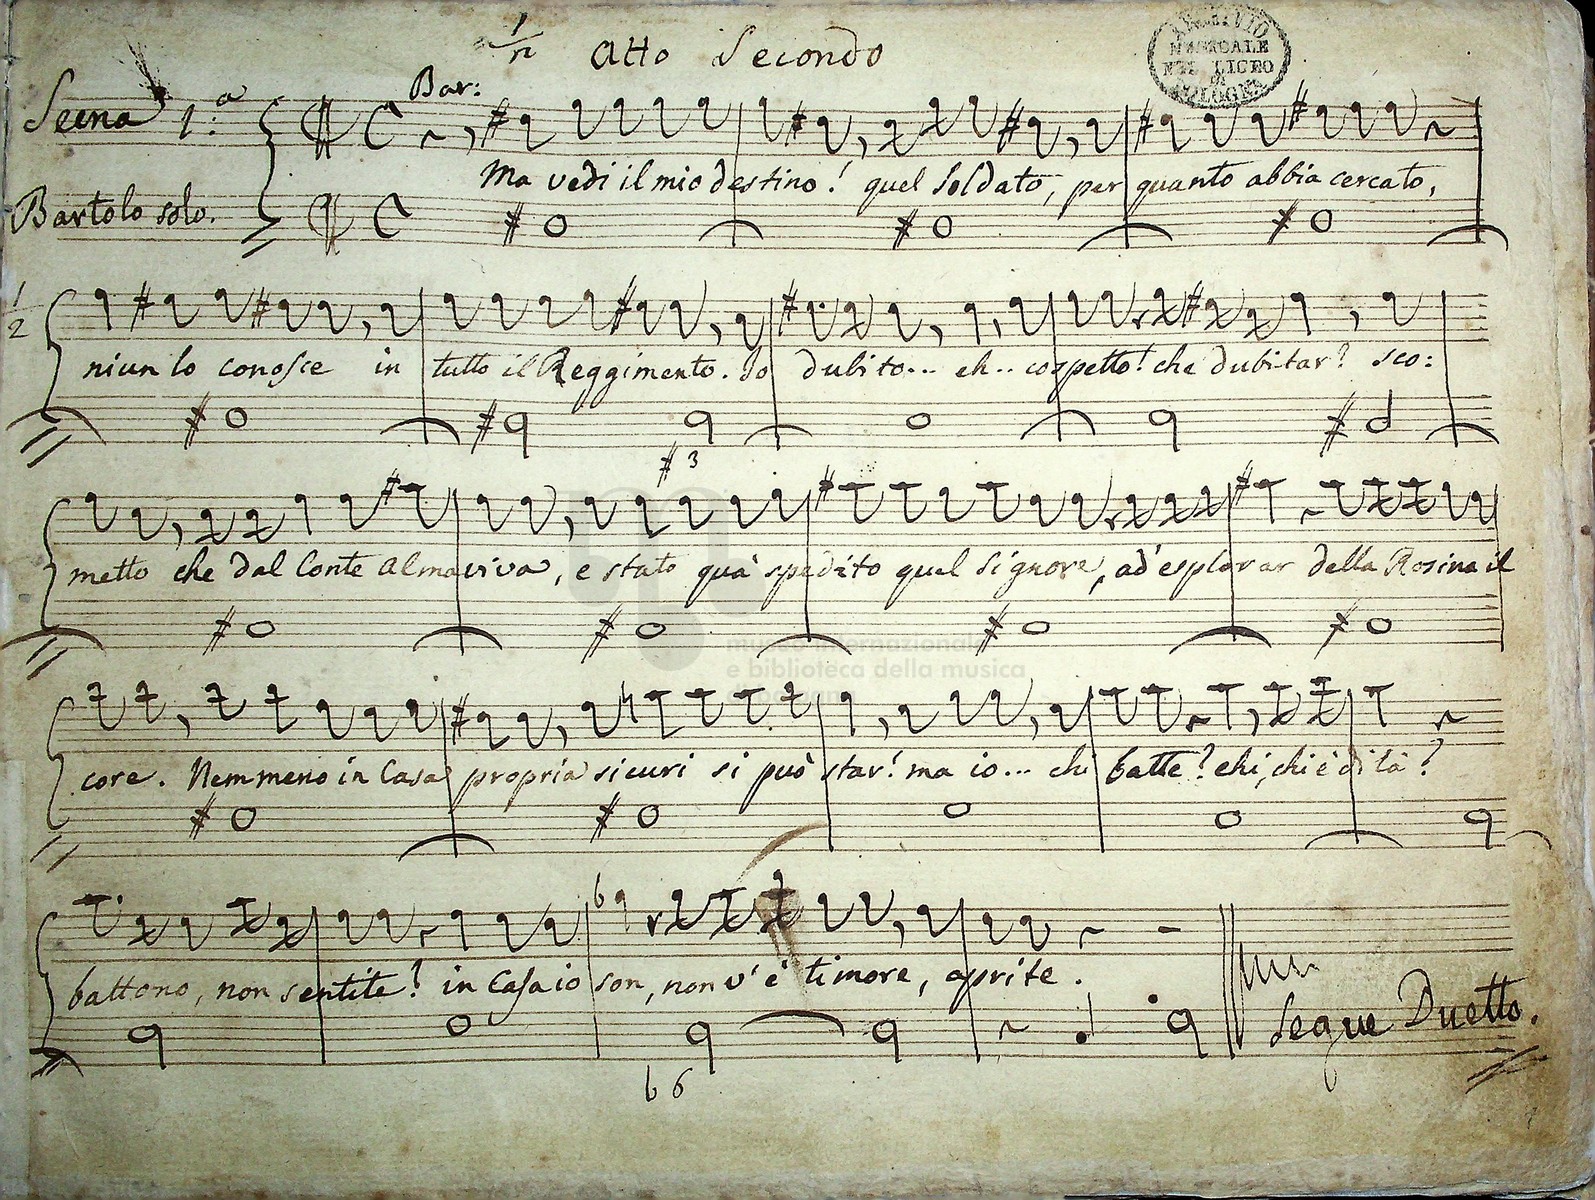 Atto Secondo
ARCHIVIO
MUSICALE
NEL LICEO
DI
BOLOGNA
Bar:
Scena 1:a
Ma vedi il mio destino! quel Soldato, per quanto abbia cercato,
Bartolo solo.
1/2
niun lo conosce in tutto il Reggimento. Io dubito... eh.. cospetto! che dubitar? sco:
# 3
metto che dal Conte Almaviva, e stato quà spedito quel Signore, ad'esplorar della Rosina il
museo internazionale
e biblioteca della musica
core. Nemmeno in Casa propria sicuri si può star! ma io... chi batte? ehi, chi è di là?
battono, non sentite? in Casa io son, non v'è timore, aprite.
Segue Duetto.
b 6